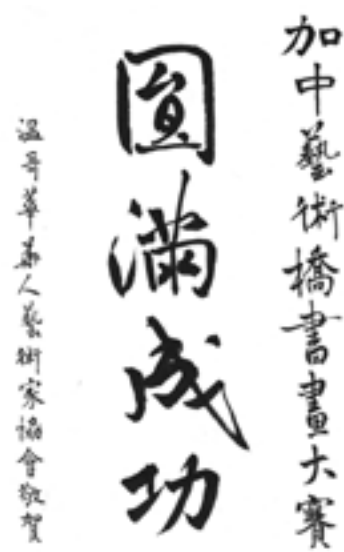 加中藝術橋書畫大賽
圓滿成功
溫哥華華人藝術家協會敬賀